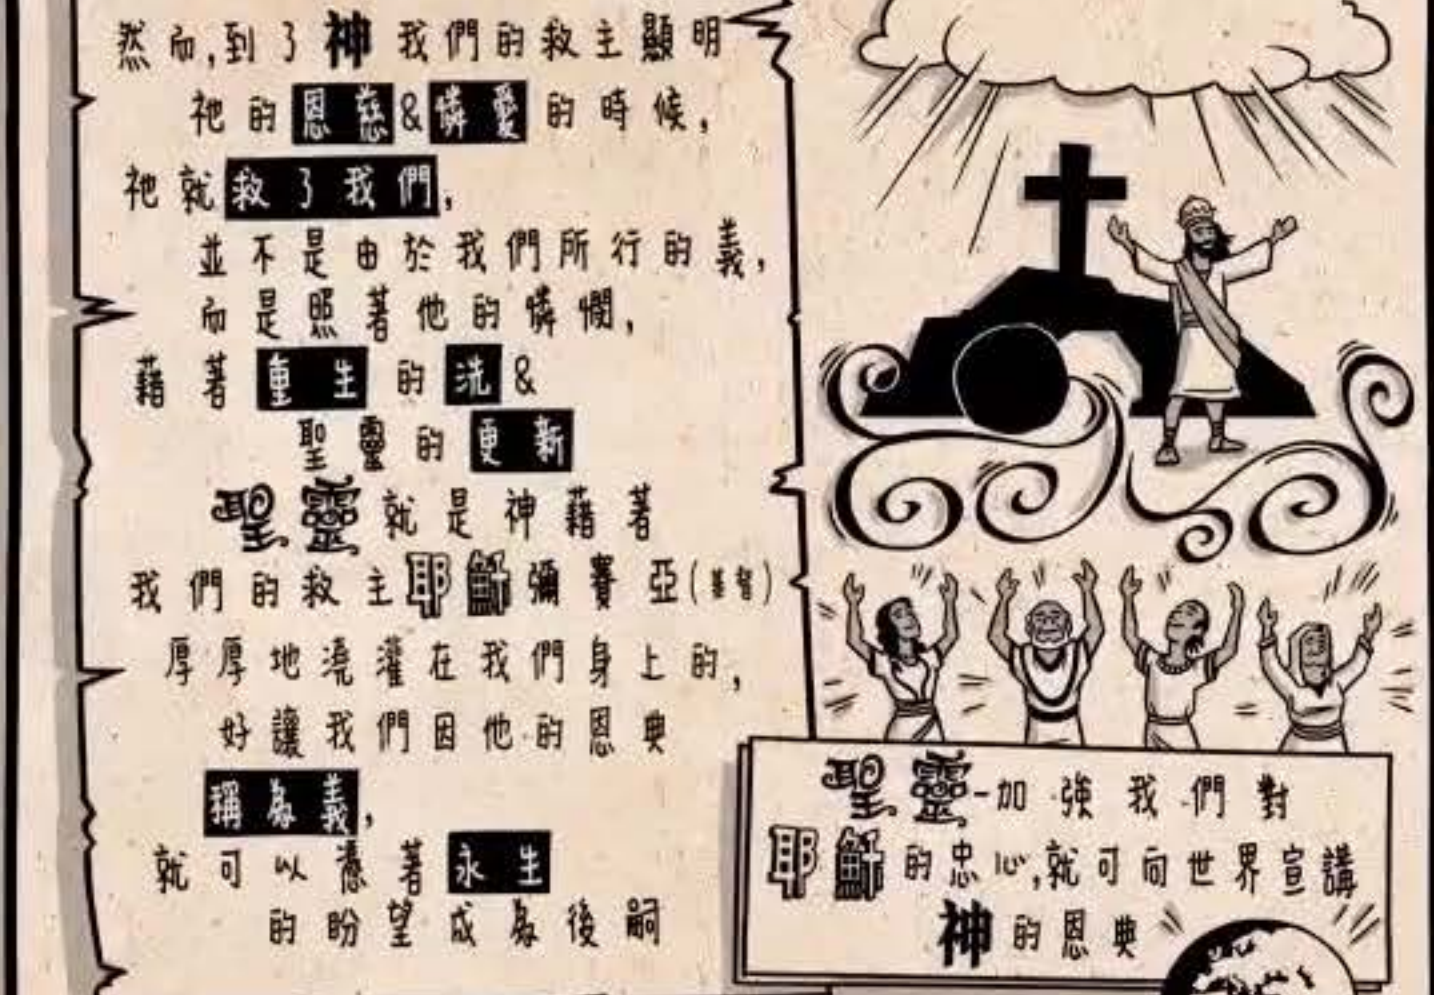 然而,到了神我們的救主顯明
祂的恩慈&憐愛的時候,
祂就救了我們,
並不是由於我們所行的義,
而是照著他的憐憫,
藉著重生的洗&
聖靈的更新
聖靈就是神藉著
我們的救主耶穌彌賽亞(基督)
厚厚地澆灌在我們身上的,
好讓我們因他的恩典
稱為義,
就可以憑著永生
的盼望成為後嗣
聖靈-加強我們對
耶穌的忠心,就可向世界宣講
神的恩典